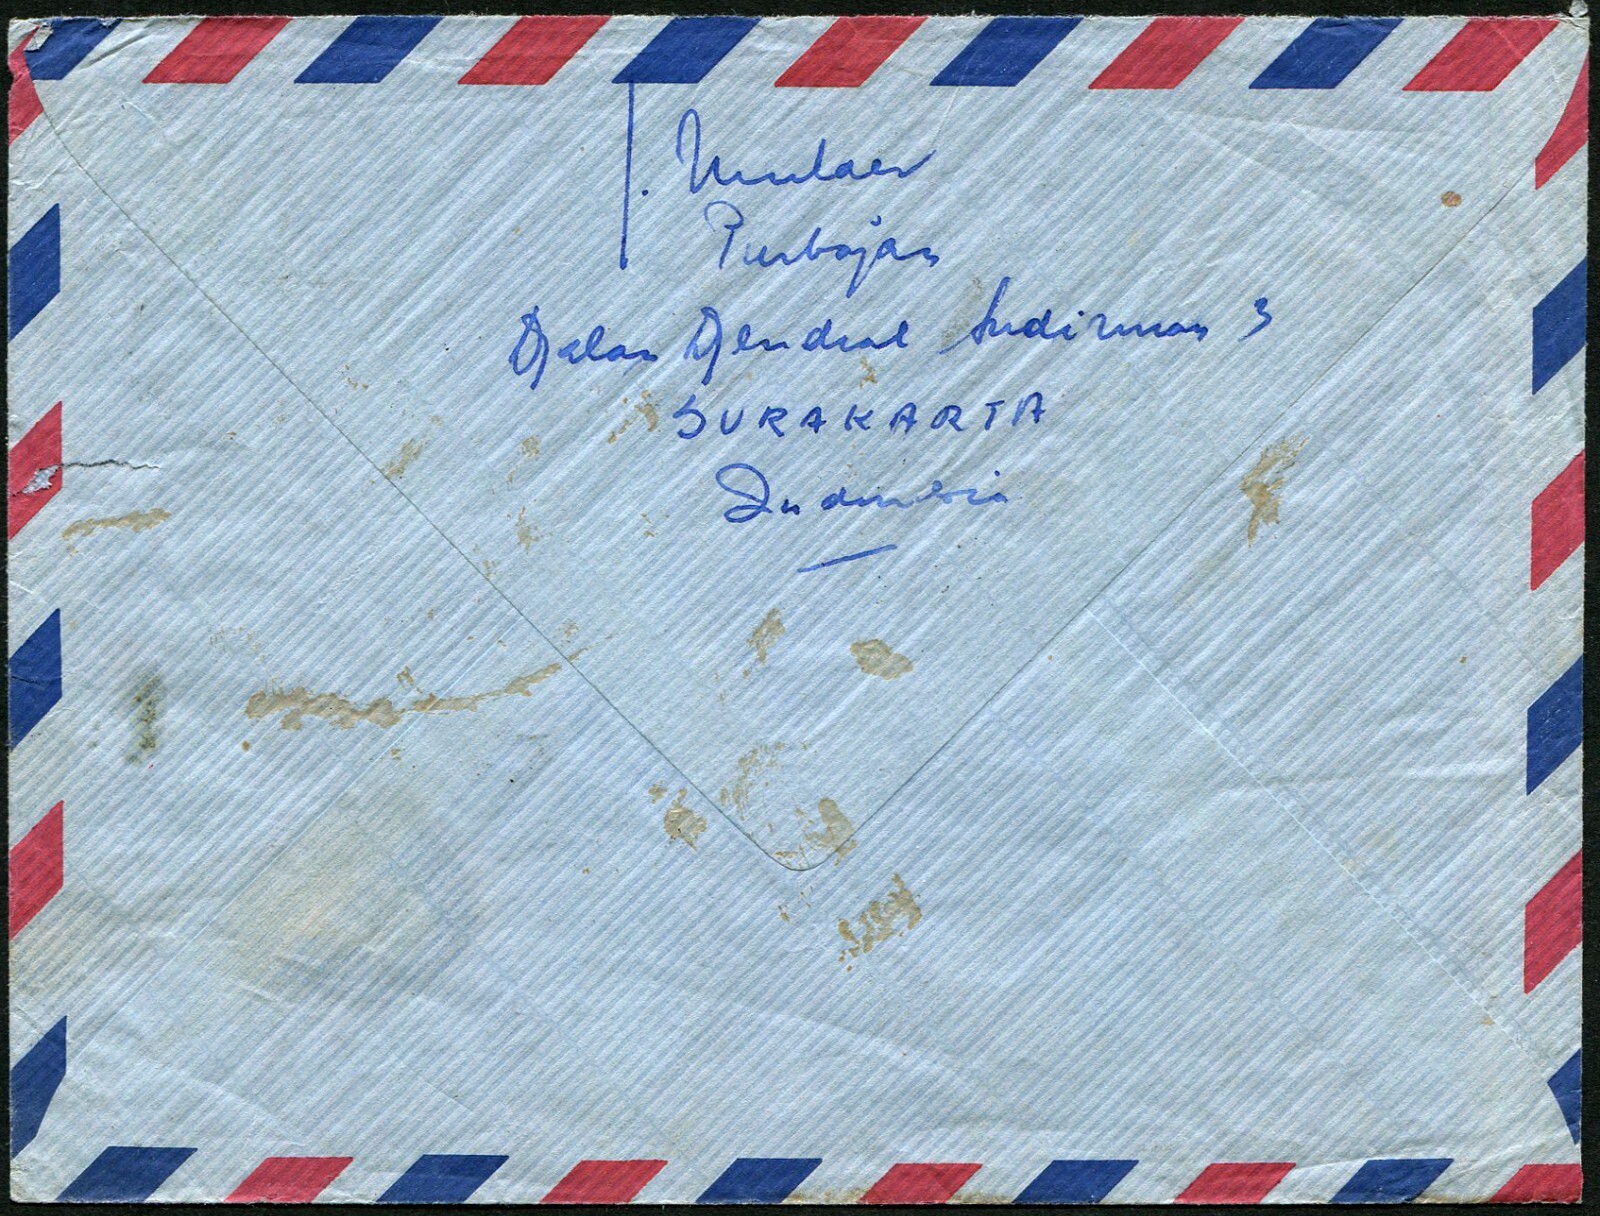 Purbajan
Djalan Djendral Sudirman 3
SURAKARTA
Indonesia